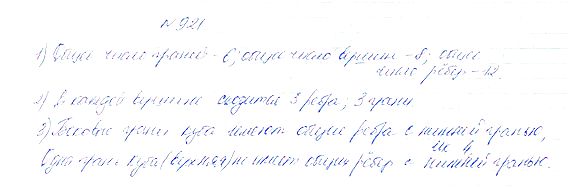 № 921
1) Общее число граней - 6; общее число вершин - 8; общее
число рёбер - 12.
2) В каждой вершине сходится 3 ребра, 3 грани
3) Боковые грани куба имеют общие ребра с нижней гранью,
их 4
Одна грань куба (верхняя) не имеет общих рёбер с нижней гранью.